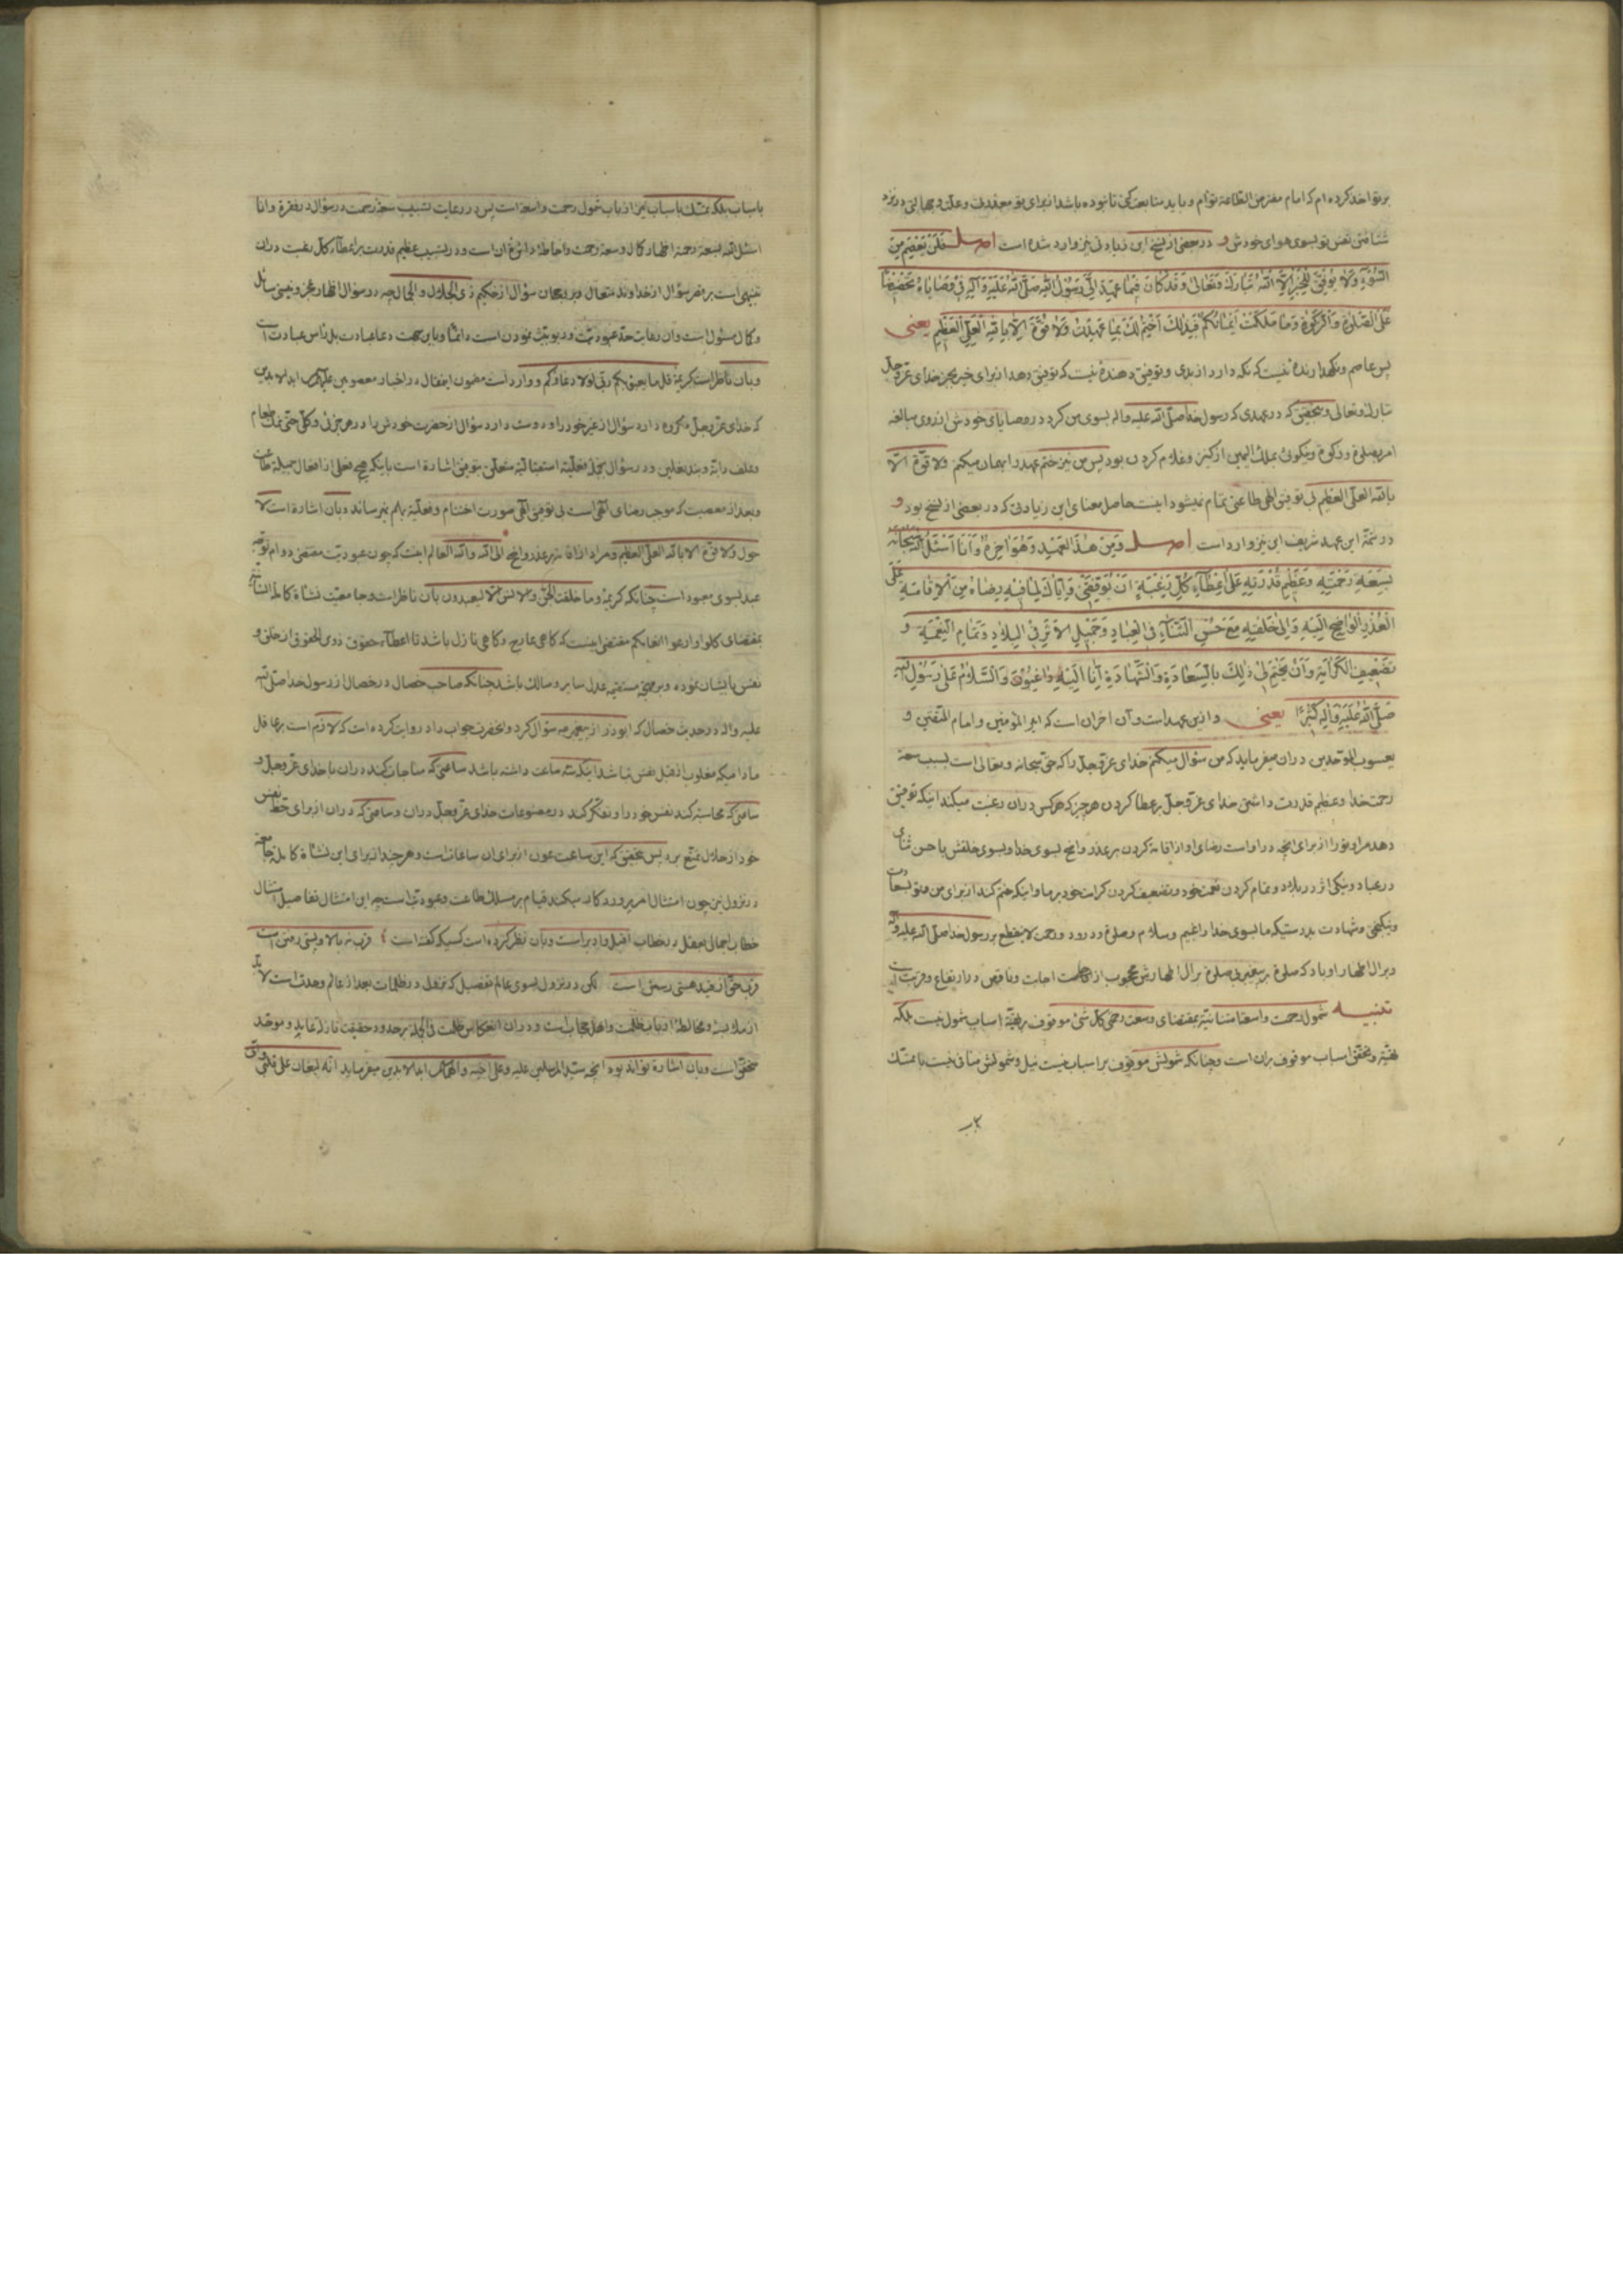 برتو اخذ کرده ام که امام مفترض الطاعهٔ توأم و باید متابعت کنی تا نبوده باشد از برای تو معذرت و علت و بهانهٔ در نزد
شتافتن نفس تو بسوی هوای خودش و در بعضی از نسخ این زیادتی نیز وارد شده است اصل فَلَنْ يَعْصِمَ مِنَ
السُّوءِ وَلَا يُوَفِّقُ لِلْخَيْرِ اِلَّا اللّٰهُ تَبَارَكَ وَتَعَالٰى وَقَدْ كَانَ فِيمَا عَهِدَ اِلَيَّ رَسُولُ اللّٰهِ صَلَّى اللّٰهُ عَلَيْهِ وَآلِهِ فِي وَصَايَاهُ تَحْضِيضًا
عَلَى الصَّلٰوةِ وَالزَّكٰوةِ وَمَا مَلَكَتْ اَيْمَانُكُمْ فَبِذٰلِكَ اَخْتِمُ لَكَ بِمَا عَهِدْتُ وَلَا قُوَّةَ اِلَّا بِاللّٰهِ الْعَلِيِّ الْعَظِيمِ يعنى
پس عاصم و نگهدارنده نیست که نگه دارد از بدی و توفیق دهندهٔ نیست که توفیق دهد از برای خیر بجز خدای عزوجل
تبارک و تعالی و بتحقیق که در عهدی که رسول خدا صلی الله علیه واله بسوی من کرد در وصایای خودش از روی مبالغه
امر بصلوة و زکوة و نیکوئی بملک الیمین از کنیز و غلام کردن بود پس من نیز ختم عهد را بهمان میکنم ولا قوة الا
بالله العلی العظیم بی توفیق الهی طاعتی تمام نمیشود اینست حاصل معنای این زیادتی که در بعضی از نسخ بود و
در تتمهٔ این عهد شریف این نیز وارد است اصل وَمِنْ هٰذَا الْعَهْدِ وَهُوَ اٰخِرُهُ وَاَنَا اَسْئَلُ اللّٰهَ سُبْحَانَهُ
بِسَعَةِ رَحْمَتِهِ وَعَظِيمِ قُدْرَتِهِ عَلٰى اِعْطَاءِ كُلِّ رَغْبَةٍ اَنْ يُوَفِّقَنِي وَاِيَّاكَ لِمَا فِيهِ رِضَاهُ مِنَ الْاِقَامَةِ عَلَى
الْعُذْرِ الْوَاضِحِ اِلَيْهِ وَاِلٰى خَلْقِهِ مَعَ حُسْنِ الثَّنَاءِ فِي الْعِبَادِ وَجَمِيلِ الْاَثَرِ فِي الْبِلَادِ وَتَمَامِ النِّعْمَةِ وَ
تَضْعِيفِ الْكَرَامَةِ وَاَنْ يَخْتِمَ لِي وَلَكَ بِالسَّعَادَةِ وَالشَّهَادَةِ اِنَّا اِلَيْهِ رَاغِبُونَ وَالسَّلَامُ عَلٰى رَسُولِ اللّٰهِ
صَلَّى اللّٰهُ عَلَيْهِ وَآلِهِ كَثِيرًا يعنى و از این عهد است و آن اخر آن است که امیر المؤمنین و امام المتقین و
یعسوب الموحدین در آن میفرماید که من سؤال میکنم خدای عزوجل را که حق سبحانه و تعالی است بسبب سعهٔ
رحمت خدا و عظیم قدرت داشتن خدای عزوجل بر عطا کردن هر چیز که هر کس در ان رغبت میکند اینکه توفیق
دهد مرا و تو را از برای انچه در او است رضای او از اقامه کردن بر عذر واضح بسوی خدا و بسوی خلقش با حسن ثنای
در عباد و نیکی اثر در بلاد و تمام کردن نعمت خود و تضعیف کردن کرامت خود بر ما و اینکه ختم کند از برای من و تو بسعادت
و نیکبختی و شهادت بدرستیکه ما بسوی خدا راغبیم و سلام و صلوة و درود و رحمت لا ینقطع بر رسول خدا صلی الله علیه واله
و بر ال اطهار او باد که صلوة بر پیغمبر بی صلوة بر ال اطهارش محجوب از اجابت و ناقص در ارتفاع و قربت است
تنبیه شمول رحمت واسعه امتنانیه بمقتضای وسعت رحمتی کل شئ موقوف بر تهیّهٔ اسباب شمول نیست بلکه
تهیّه و تحقق اسباب موقوف بران است و چنانکه شمولش موقوف بر اسباب نیست نیل و شمولش منافی نیست با تمسّک
باسباب بلکه تمسک باسباب نیز از باب شمول رحمت واسعه است پس در رعایت تسبیب سعهٔ رحمت در سؤال در فقرهٔ وانا
اسئل الله بسعة رحمته اظهار کمال وسعت رحمت و احاطه و اتساع ان است و در تسبیب عظیم قدرت بر اعطاء کل رغبت در ان
تنبیهی است بر قصر سؤال از خداوند متعال و بر رجحان سؤال از حکیم ذی الجلال و الجمال چه در سؤال اظهار عجز و نیستی سائل
و کمال مسئول است و ان رعایت حدّ عبودیت و ربوبیت نمودن است دائما و باین جهت دعا عبادت بل راس عبادت است
و بان ناظر است کریمهٔ قل ما یعبؤ بکم ربی لولا دعاؤکم و وارد است مضمون این مقال در اخبار معصومین
که خدای عزوجل مکروه دارد سؤال از غیر خود را و دوست دارد سؤال از حضرت خودش را در هر جزئی و کلی حتی نمک طعام
وعلف دابّه و بند نعلین و در سؤال بجملهٔ فعلیّه استقبالیّه متعلق بتوفیق اشاره است باینکه هیچ فعلی از افعال جمیلهٔ طاعت
و بعد از معصیت که موجب رضای الهی است بی توفیق الهی صورت اختتام و فعلیّة بهم نمیرساند و بان اشاره است لا
حول ولا قوة الا بالله العلی العظیم و مراد از اقامه بر عذر واضح الی الله والله العالم اینست که چون عبودیت مقتضی دوام توجه
عبد بسوی معبود است چنانکه کریمهٔ وما خلقت الجن والانس الا لیعبدون بآن ناظر است و جامعیّت نشاهٔ کامله انسانیّه
بمقتضای کلوا وارعوا انعامکم مقتضی اینست که کاهی عارج و کاهی نازل باشد تا اعطاء حقوق ذوی الحقوق از خلق و
نفس بایشان نموده و بر نهج مستقیم عدل سایر و سالک باشد چنانکه صاحب خصال در خصال از رسول خدا صلی الله
علیه واله در حدیث خصال که ابوذر از پیغمبر سؤال کرد و انحضرت جواب داد روایت کرده است که لازم است بر عاقل
مادامیکه مغلوب از قبل نفس نباشد اینکه سه ساعت داشته باشد ساعتی که مناجات کند در ان با خدای عزوجل و
ساعتی که محاسبه کند نفس خود را و تفکر کند در مصنوعات خدای عزوجل در ان و ساعتی که در ان از برای حظّ نفس
خود از حلال تمتع برد پس بتحقیق که این ساعت عون از برای ان ساعات است و هر چند از برای این نشاهٔ کامل جامعه
در نزول نیز چون امتثال امر پروردکار میکند قیام بر مسلک طاعت و عبودیّت است چه این امتثال تفاصیل امتثال
خطاب اجمالی بعقل در خطاب اقبل و ادبر است و بان نظر کرده است کسیکه گفته است ؛ قرب نه بالا و پستی رفتن است
قرب حق از قید هستی رستن است لکن در نزول بسوی عالم تفصیل که نزول در ظلمات بعد از عالم وحدت است لابد
از ملابسه و مخالطه ارباب ظلمت و اهل حجاب است و در ان انعکاس ظلمت فی الجمله بر حدود حقیقت نازله عاید و موحّد
متحقق است و بان اشاره تواند بود انچه سید المرسلین علیه وعلی میفرماید انّه لیغان علی قلبی وانی